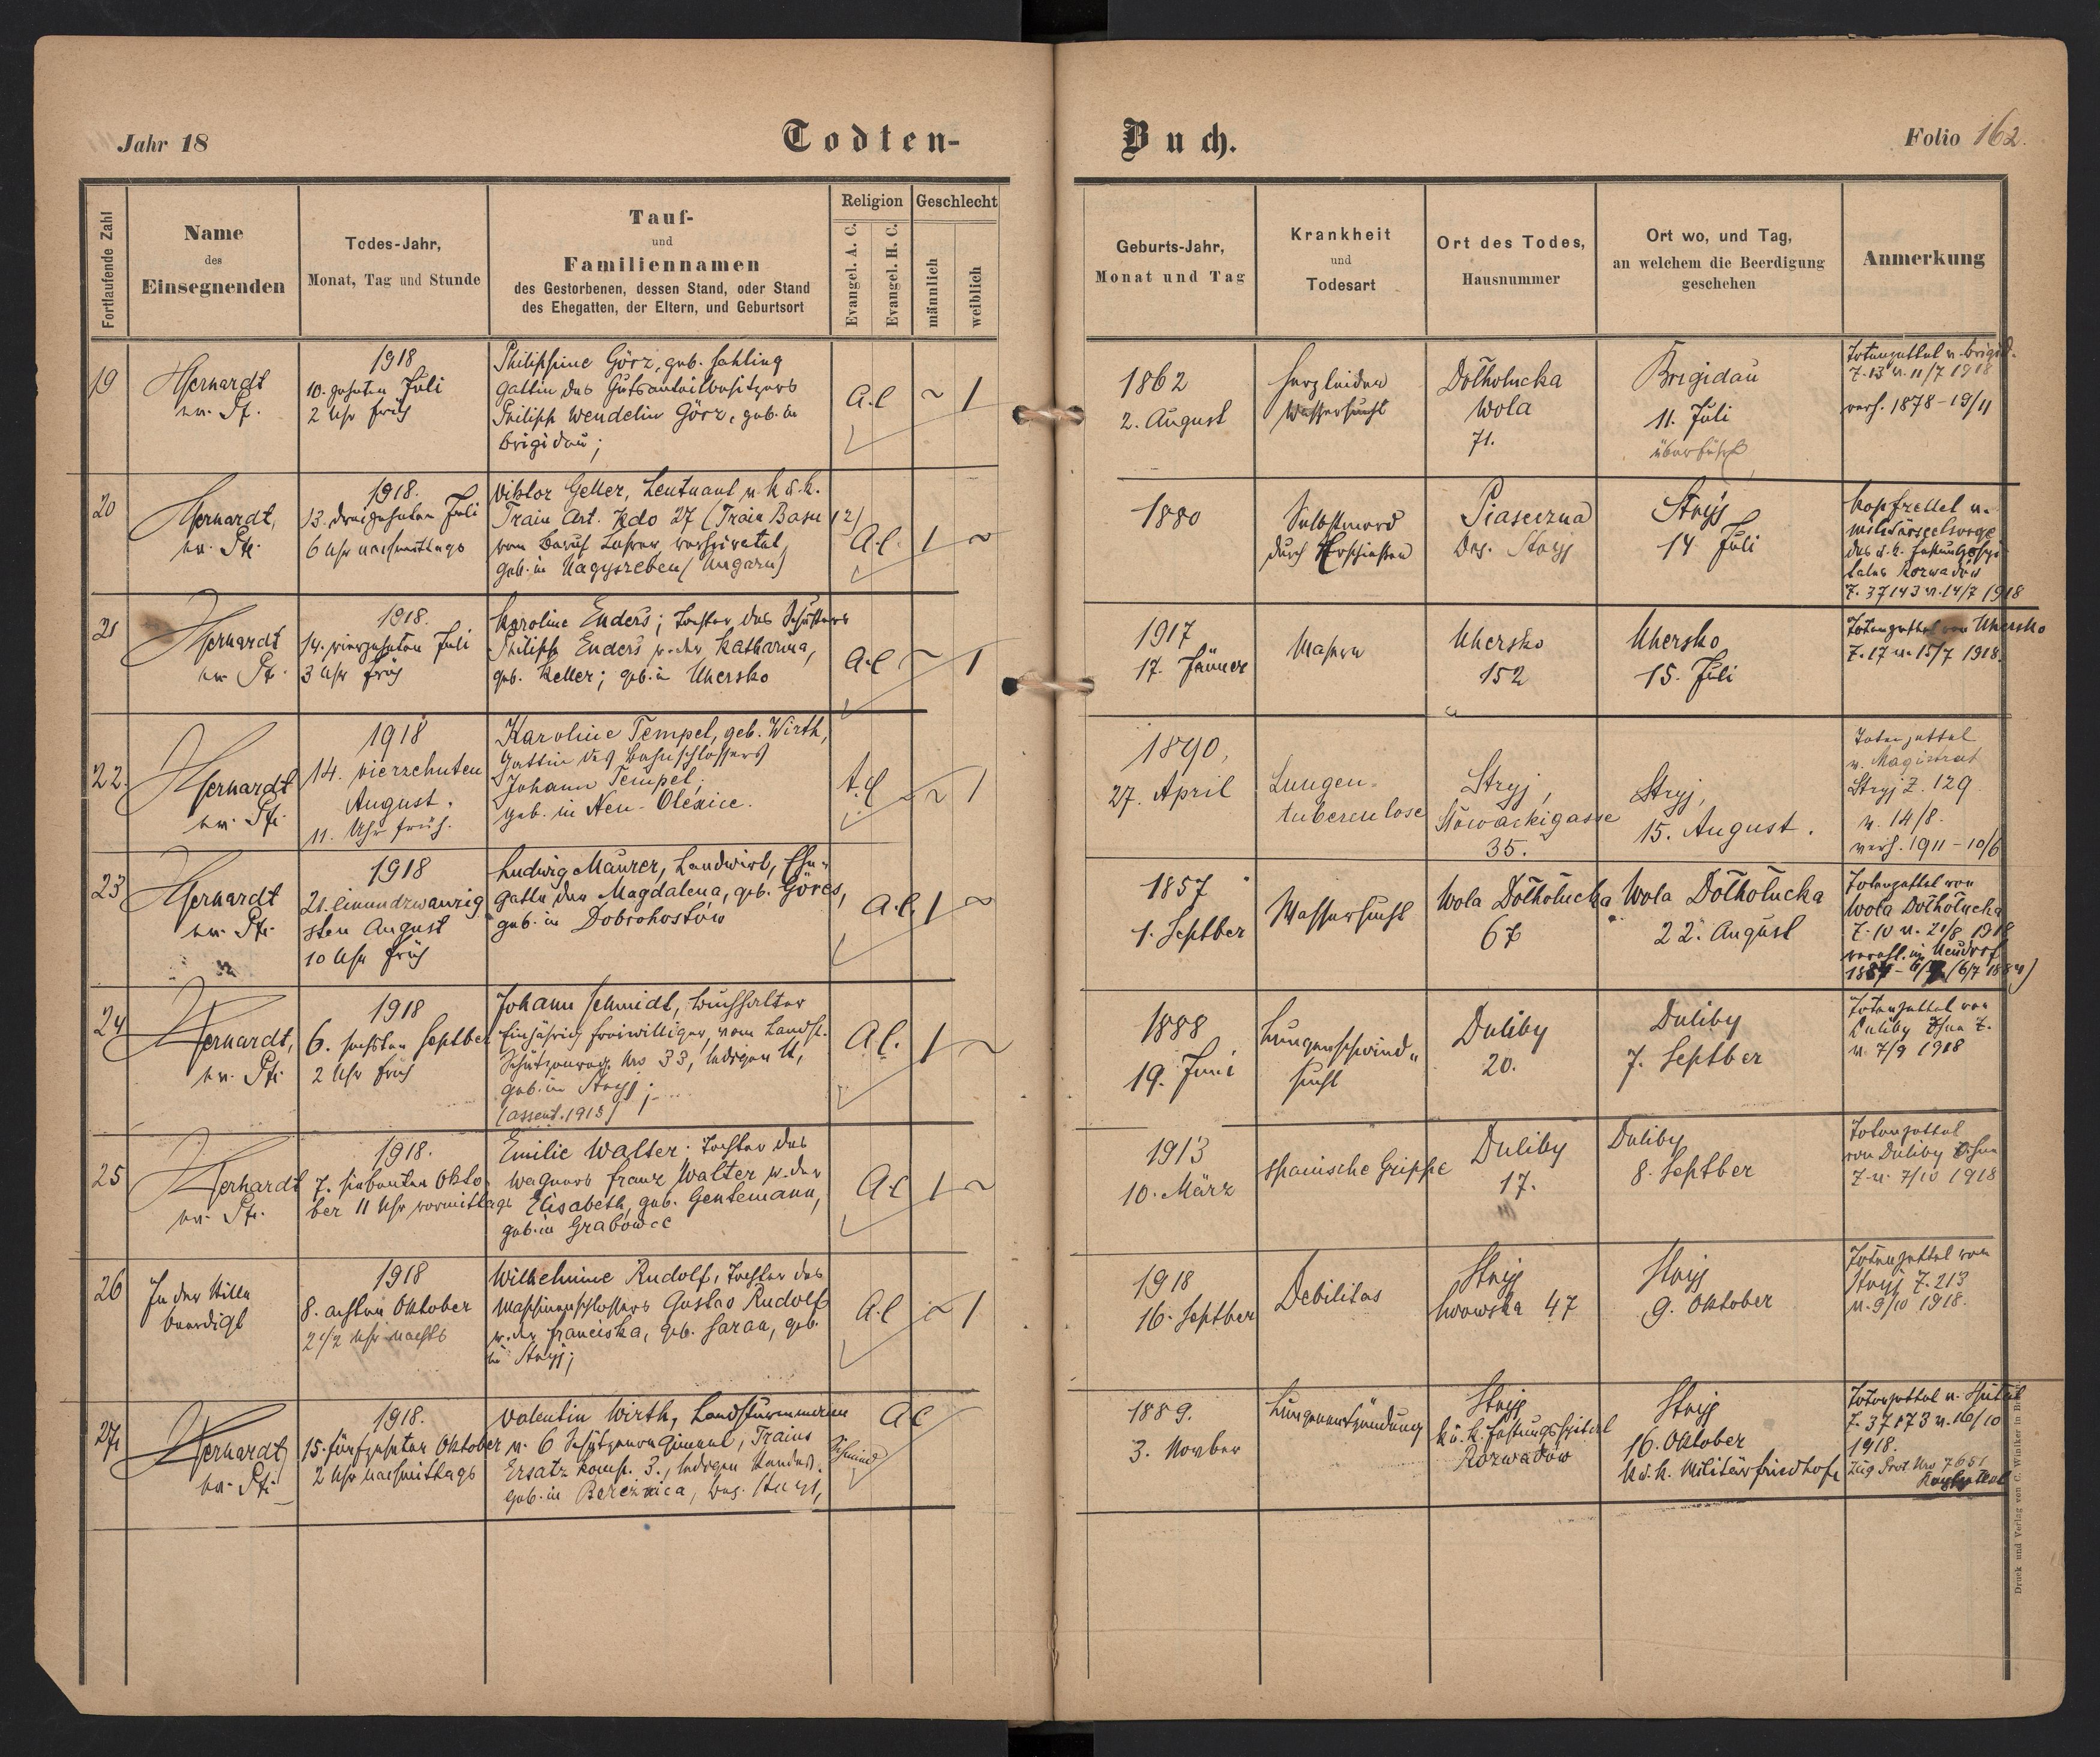 Jahr 18
Todten-
Buch.
Folio 162.
Fortlaufende Zahl
Name
des
Einsegnenden
Todes-Jahr,
Monat, Tag und Stunde
Tauf-
und
Familiennamen
des Gestorbenen, dessen Stand, oder Stand
des Ehegatten, der Eltern, und Geburtsort
Religion
Evangel. A. C.
Evangel. H. C.
Geschlecht
männlich
weiblich
Geburts-Jahr,
Monat und Tag
Krankheit
und
Todesart
Ort des Todes,
Hausnummer
Ort wo, und Tag,
an welchem die Beerdigung
geschehen
Anmerkung
19
1918
10. zehnten Juli
2 Uhr früh
Philippine Görz, geb. Hohling
Gattin des Gutsanteilbesitzers
Philipp Wendelin Görz, geb. in
Brigidau;
A.C
~ 1
1862
2. August
Herzleiden
Wassersucht
Dołhołucka
Wola
71.
Brigidau
11. Juli
überführt
Totenzettel v. Brigid.
Z. 13 v. 11/7 1918
verh. 1878 - 19/11
20
1918.
13. dreizehnten Juli
6 Uhr nachmittags
Viktor Geller, Leutnant v. k.u.k.
Train Art. Kdo 27 (Train Basis 12)
vom Beruf Lehrer, verheiratet,
geb. in Nagyszeben (Ungarn)
A.C.
1 ~
1880
Selbstmord
durch Erschiessen
Piaseczna
Bez. Stryj
Stryj
14 Juli
Kopfzettel v.
Militärseelsorge
des k.k. Festungsspi-
tales Rozwadów
Z. 37143 v. 14/7 1918
21
1918.
14. vierzehnten Juli
3 Uhr früh
Karoline Enders; Tochter des Schusters
Philipp Enders u. der Katharina,
geb. Keller; geb. in Uhersko
A.C
~ 1
1917
17. Jänner
Masern
Uhersko
152
Uhersko
15. Juli
Totenzettel von Uhersko
Z. 17 v. 15/7 1918.
22.
1918
14. vierzehnten
August.
11. Uhr früh.
Karoline Tempel, geb. Wirth,
Gattin des Bahnschlossers
Johann Tempel,
geb. in Neu-Olexice.
~ 1
1890,
27. April
Lungen-
tuberculose
Stryj,
Słowackigasse
35.
Stryj,
15. August.
Totenzettel
v. Magistrat
Stryj Z. 129
v. 14/8.
verh. 1911 - 10/6
23
1918
21. einundzwanzig
sten August
10 Uhr früh
Ludwig Maurer, Landwirt, Ehe-
gatte der Magdalena, geb. Göres,
geb. in Dobrohostów
A.C.
1 ~
1857
1. Septber
Wassersucht
Wola Dołhołucka
67
Wola Dołhołucka
22. August
Totenzettel von
Wola Dołhołucka
Z. 10 v. 21/8 1918
verehl. in Neudorf
24
1918
6. sechsten Septber
2 Uhr früh
Johann Schmidt, Buchhalter
Einjährig freiwilliger, vom Landst.
Schützenreg. Nro 33, ledigen St,
geb. in Stryj;
(assent. 1915)
A C.
1 ~
1888
19. Juni
Lungenschwind-
sucht
Duliby
20.
Duliby
7. Septber
Totenzettel von
Duliby Ohne Z.
v. 7/9 1918
25
1918.
7. siebenten Okto-
ber 11 Uhr vormittags
Emilie Walter. Tochter des
Wagners Franz Walter u. der
Elisabeth, geb. Gentemann,
geb. in Grabowce
A.C
1 ~
1913
10. März
spanische Grippe
Duliby
17.
Duliby
8. Septber
Totenzettel
von Duliby Ohne
Z. v. 7/10 1918
26
In der Stille
beerdigt
1918
8. achten Oktober
2 1/2 Uhr nachts
Wilhelmine Rudolf, Tochter des
Maschinenschlossers Gustav Rudolf
u. der Franciska, geb. Saran, geb.
in Stryj;
A.C
~ 1
1918
16. Septber
Debilitas
Stryj
Lwowska 47
Stryj
9. Oktober
Totenzettel von
Stryj Z. 213
v. 9/10 1918.
27
1918.
15. fünfzehnten Oktober
2 Uhr nachmittags
Valentin Wirth, Landsturmmann
v. 6 Schützenregiment, Trains
Ersatz komp. 3., ledigen Standes.
geb. in Bereznica, Bez. Stryj,
A C
1889.
3. Novber
Lungenentzündung
Stryj
k.u.k. Festungsspital
Rozwadów
Stryj
16. Oktober
k.u.k. Militärfriedhofe
Totenzettel v. Spital
Z. 37173 v. 16/10
1918.
Zug Prot. Nro 7651
Druck und Verlag von C. Winiker in Brünn.